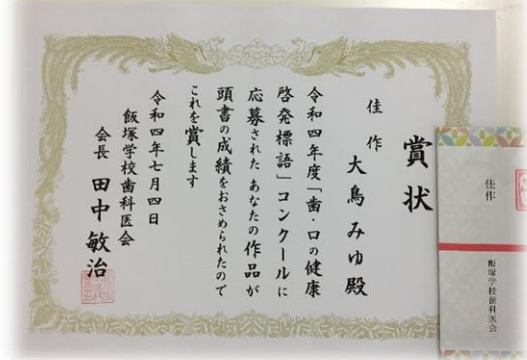 賞状
佳作
大鳥みゆ殿
令和四年度「歯・口の健康
啓発標語」コンクールに
応募された あなたの作品が
頭書の成績をおさめられたので
これを賞します
令和四年七月四日
飯塚学校歯科医会
会長 田中敏治
佳作
飯塚学校歯科医会